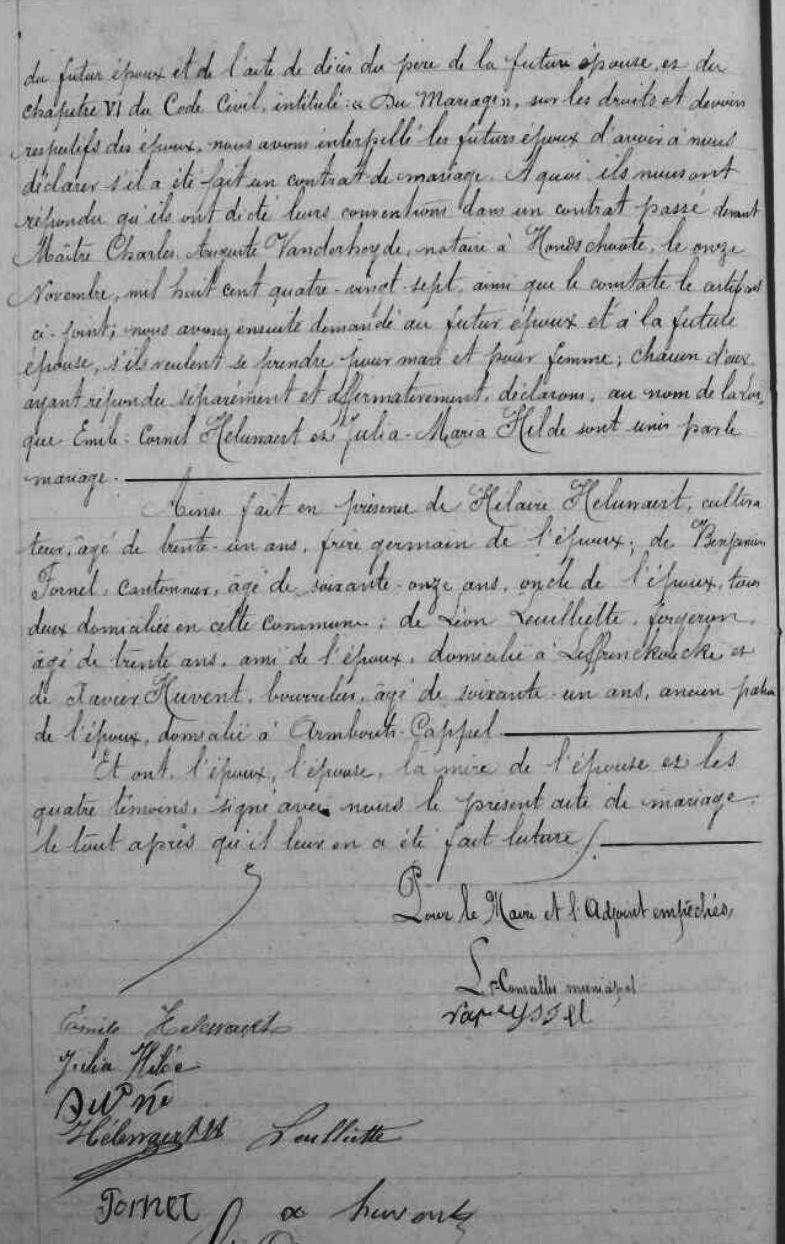 du futur époux et de l'acte de décès du père de la future épouse, et du
chapitre VI du Code Civil, intitulé: « Du Mariage », sur les droits et devoirs
respectifs des époux, nous avons interpellé les futurs époux d'avoir à nous
déclarer s'il a été fait un contrat de mariage. A quoi ils nous ont
répondu qu'ils ont dicté leurs conventions dans un contrat passé devant
Maître Charles Auguste Vanderheyde, notaire à Hondschoote, le onze
Novembre, mil huit cent quatre-vingt-sept, ainsi que le constate le certificat
ci-joint; nous avons ensuite demandé au futur époux et à la future
épouse, s'ils veulent se prendre pour mari et pour femme; chacun d'eux
ayant répondu séparément et affirmativement, déclarons, au nom de la loi,
que Emile-Cornil Helewaert et Julia-Maria Hilde sont unis par le
mariage.
Ainsi fait en présence de Hilaire Helewaert, cultiva
teur, âgé de trente-un ans, frère germain de l'époux; de Benjamin
Tornel, cantonnier, âgé de soixante-onze ans, oncle de l'époux, tous
deux domiciliés en cette commune; de Léon Leulliette, forgeron,
âgé de trente ans, ami de l'époux, domicilié à Leffrinckoucke et
de Xavier Huvent, bourrelier, âgé de soixante-un ans, ancien patron
de l'époux, domicilié à Armbouts-Cappel.
Et ont, l'époux, l'épouse, la mère de l'épouse et les
quatre témoins, signé avec nous le présent acte de mariage,
le tout après qu'il leur en a été fait lecture.
Pour le Maire et l'Adjoint empêchés,
Le Conseiller municipal
Emile Helewaert
Julia Hilde
Helewaert H Leulliette
Tornel x huvent